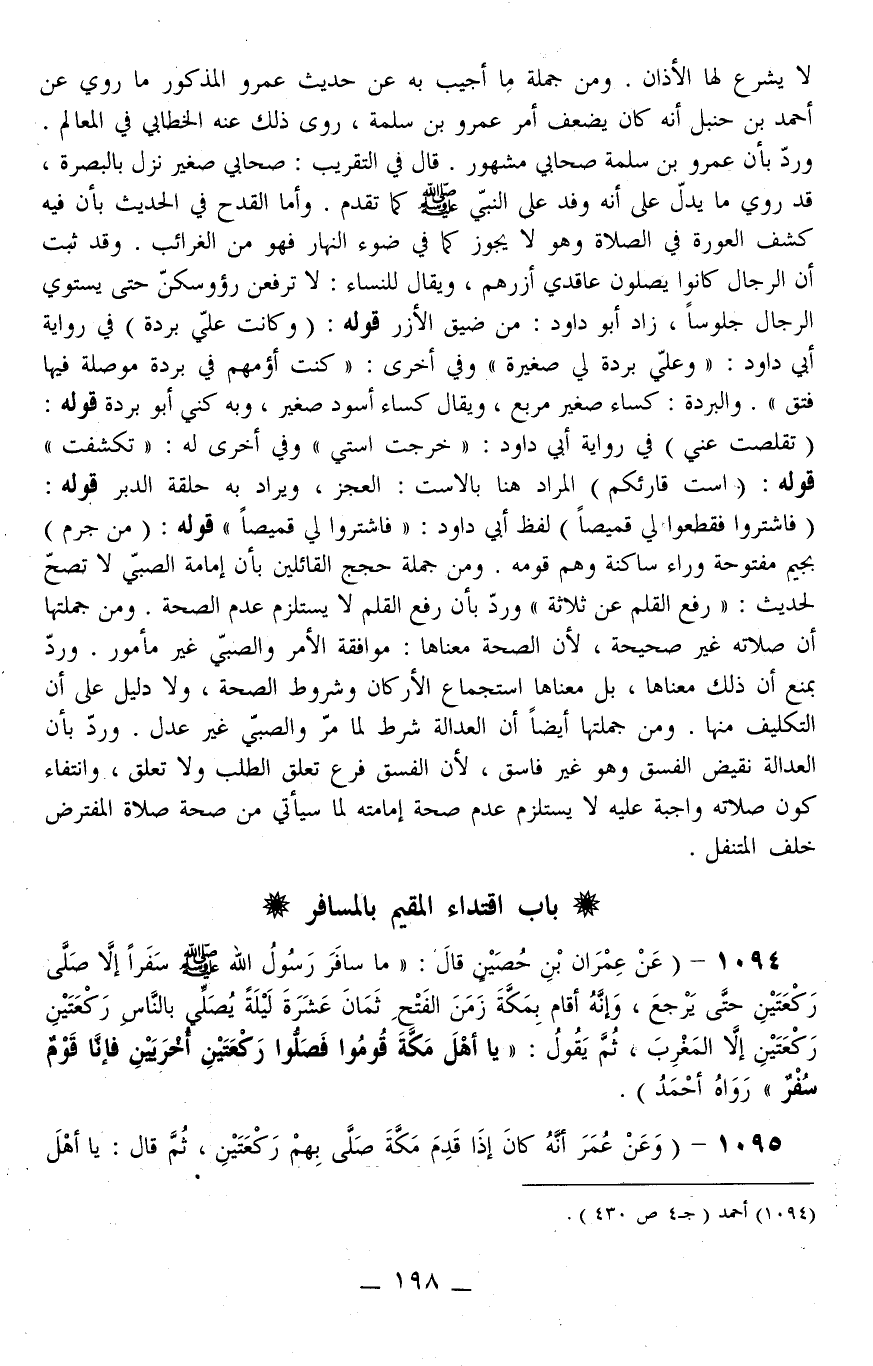 لا يشرع لها الأذان . ومن جملة ما أجيب به عن حديث عمرو المذكور ما روي عن
أحمد بن حنبل أنه كان يضعف أمر عمرو بن سلمة ، روى ذلك عنه الخطابي في المعالم .
وردّ بأن عمرو بن سلمة صحابي مشهور . قال في التقريب : صحابي صغير نزل بالبصرة ،
قد روي ما يدلّ على أنه وفد على النبيّ ﷺ كما تقدم . وأما القدح في الحديث بأن فيه
كشف العورة في الصلاة وهو لا يجوز كما في ضوء النهار فهو من الغرائب . وقد ثبت
أن الرجال كانوا يصلون عاقدي أزرهم ، ويقال للنساء : لا ترفعن رؤوسكنّ حتى يستوي
الرجال جلوساً ، زاد أبو داود : من ضيق الأزر قوله : ( وكانت عليّ بردة ) في رواية
أبي داود : « وعليّ بردة لي صغيرة » وفي أخرى : « كنت أؤمهم في بردة موصلة فيها
فتق » . والبردة : كساء صغير مربع ، ويقال كساء أسود صغير ، وبه كني أبو بردة قوله :
( تقلصت عني ) في رواية أبي داود : « خرجت استي » وفي أخرى له : « تكشفت »
قوله : ( است قارئكم ) المراد هنا بالاست : العجز ، ويراد به حلقة الدبر قوله :
( فاشتروا فقطعوا لي قميصاً ) لفظ أبي داود : « فاشتروا لي قميصاً » قوله : ( من جرم )
بجيم مفتوحة وراء ساكنة وهم قومه . ومن جملة حجج القائلين بأن إمامة الصبيّ لا تصحّ
لحديث : « رفع القلم عن ثلاثة » وردّ بأن رفع القلم لا يستلزم عدم الصحة . ومن جملتها
أن صلاته غير صحيحة ، لأن الصحة معناها : موافقة الأمر والصبيّ غير مأمور . وردّ
بمنع أن ذلك معناها ، بل معناها استجماع الأركان وشروط الصحة ، ولا دليل على أن
التكليف منها . ومن جملتها أيضاً أن العدالة شرط لما مرّ والصبيّ غير عدل . وردّ بأن
العدالة نقيض الفسق وهو غير فاسق ، لأن الفسق فرع تعلق الطلب ولا تعلق ، وانتفاء
كون صلاته واجبة عليه لا يستلزم عدم صحة إمامته لما سيأتي من صحة صلاة المفترض
خلف المتنفل .
باب اقتداء المقيم بالمسافر
١٠٩٤ - ( عَنْ عِمْرَان بْنِ حُصَيْنٍ قالَ : « ما سافَرَ رَسُولُ الله ﷺ سَفَراً إلَّا صَلَّى
رَكْعَتَيْنِ حتَّى يَرْجعَ ، وَإنَّهُ أقام بِمَكَّةَ زَمَنَ الفَتْحِ ثَمَانَ عَشَرَةَ لَيْلَةً يُصَلِّي بالنَّاسِ رَكْعَتَيْنِ
رَكْعَتَيْنِ إلَّا المَغْرِبَ ، ثُمَّ يَقُولُ : « يا أهْلَ مَكَّةَ قُومُوا فَصَلُّوا رَكْعَتَيْنِ أُخْرَيَيْنِ فإنَّا قَوْمٌ
سُفْرٌ » رَوَاهُ أحْمَدُ ) .
١٠٩٥ - ( وَعَنْ عُمَرَ أنَّهُ كانَ إذَا قَدِمَ مَكَّةَ صَلَّى بِهمْ رَكْعَتَيْنِ ، ثُمَّ قال : يا أهْلَ
(١٠٩٤) أحمد ( جـ٤ ص ٤٣٠ ) .
— ١٩٨ —